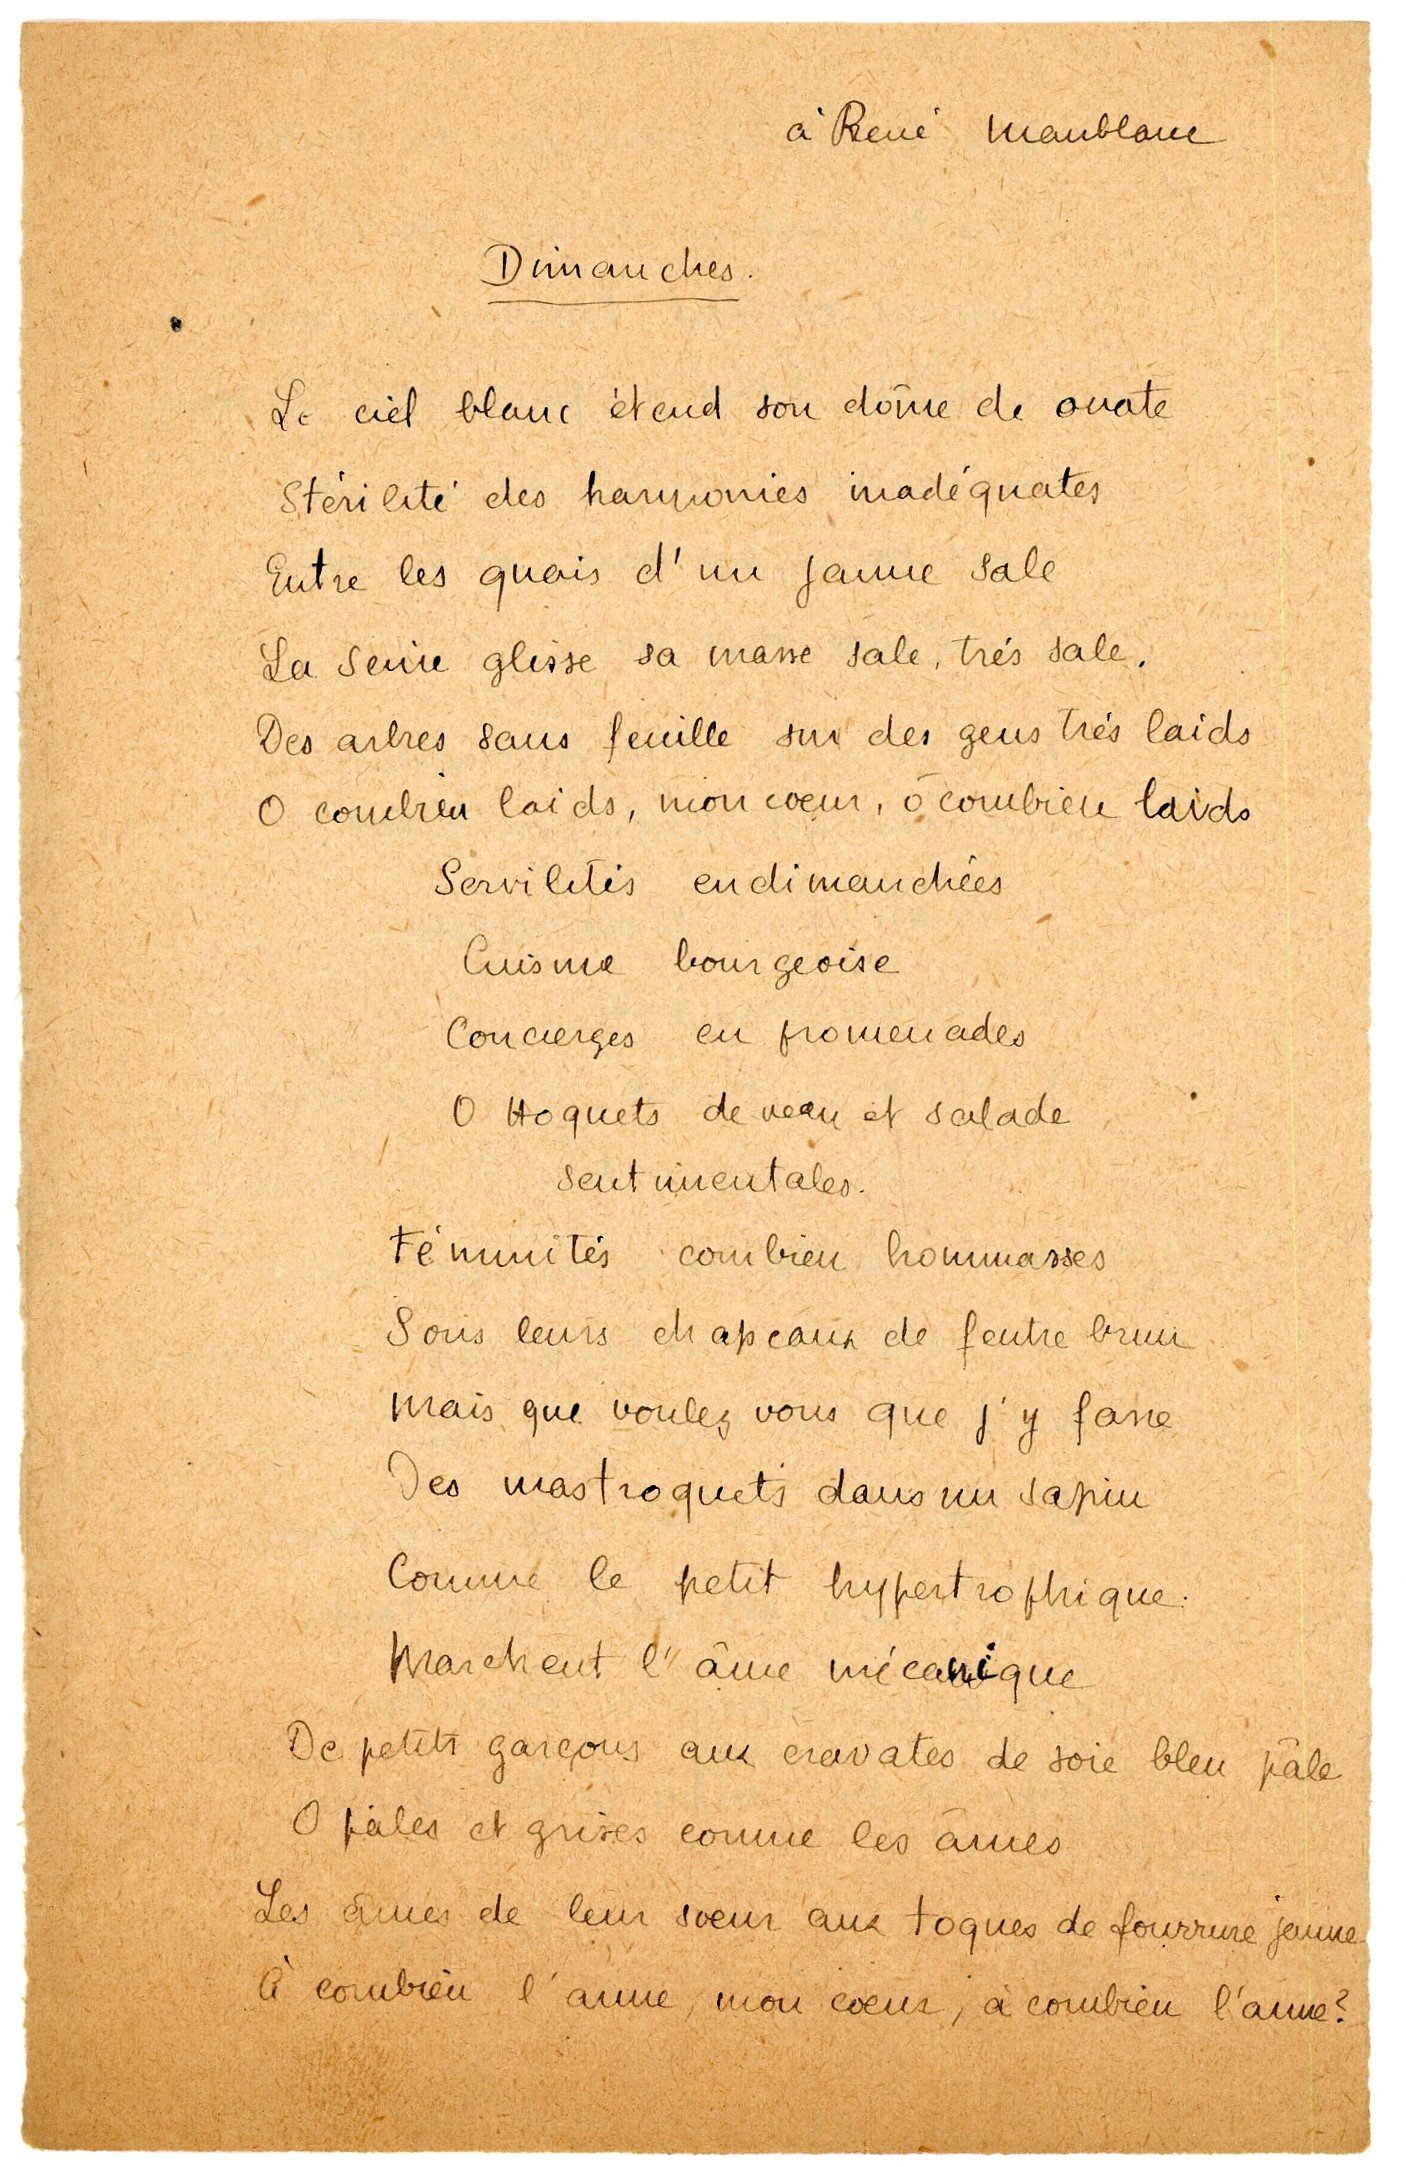 à René Maublanc
Dimanches.
Le ciel blanc étend son dôme de ouate
Stérilité des harmonies inadéquates
Entre les quais d'un jaune sale
La Seine glisse sa masse sale, très sale.
Des arbres sans feuille sur des gens très laids
O combien laids, mon coeur, ô combien laids
Servilités endimanchées
Cuisine bourgeoise
Concierges en promenades
O Hoquets de veau et salade
sentimentales.
Féminités combien hommasses
Sous leurs chapeaux de feutre brun
Mais que voulez vous que j'y fasse
Des mastroquets dans un sapin
Comme le petit hypertrophique.
Marchent l'âme mécanique
De petits garçons aux cravates de soie bleu pâle
O pâles et grises comme les âmes
Les âmes de leur soeur aux toques de fourrure jaune
A combien l'aune, mon coeur, à combien l'aune?